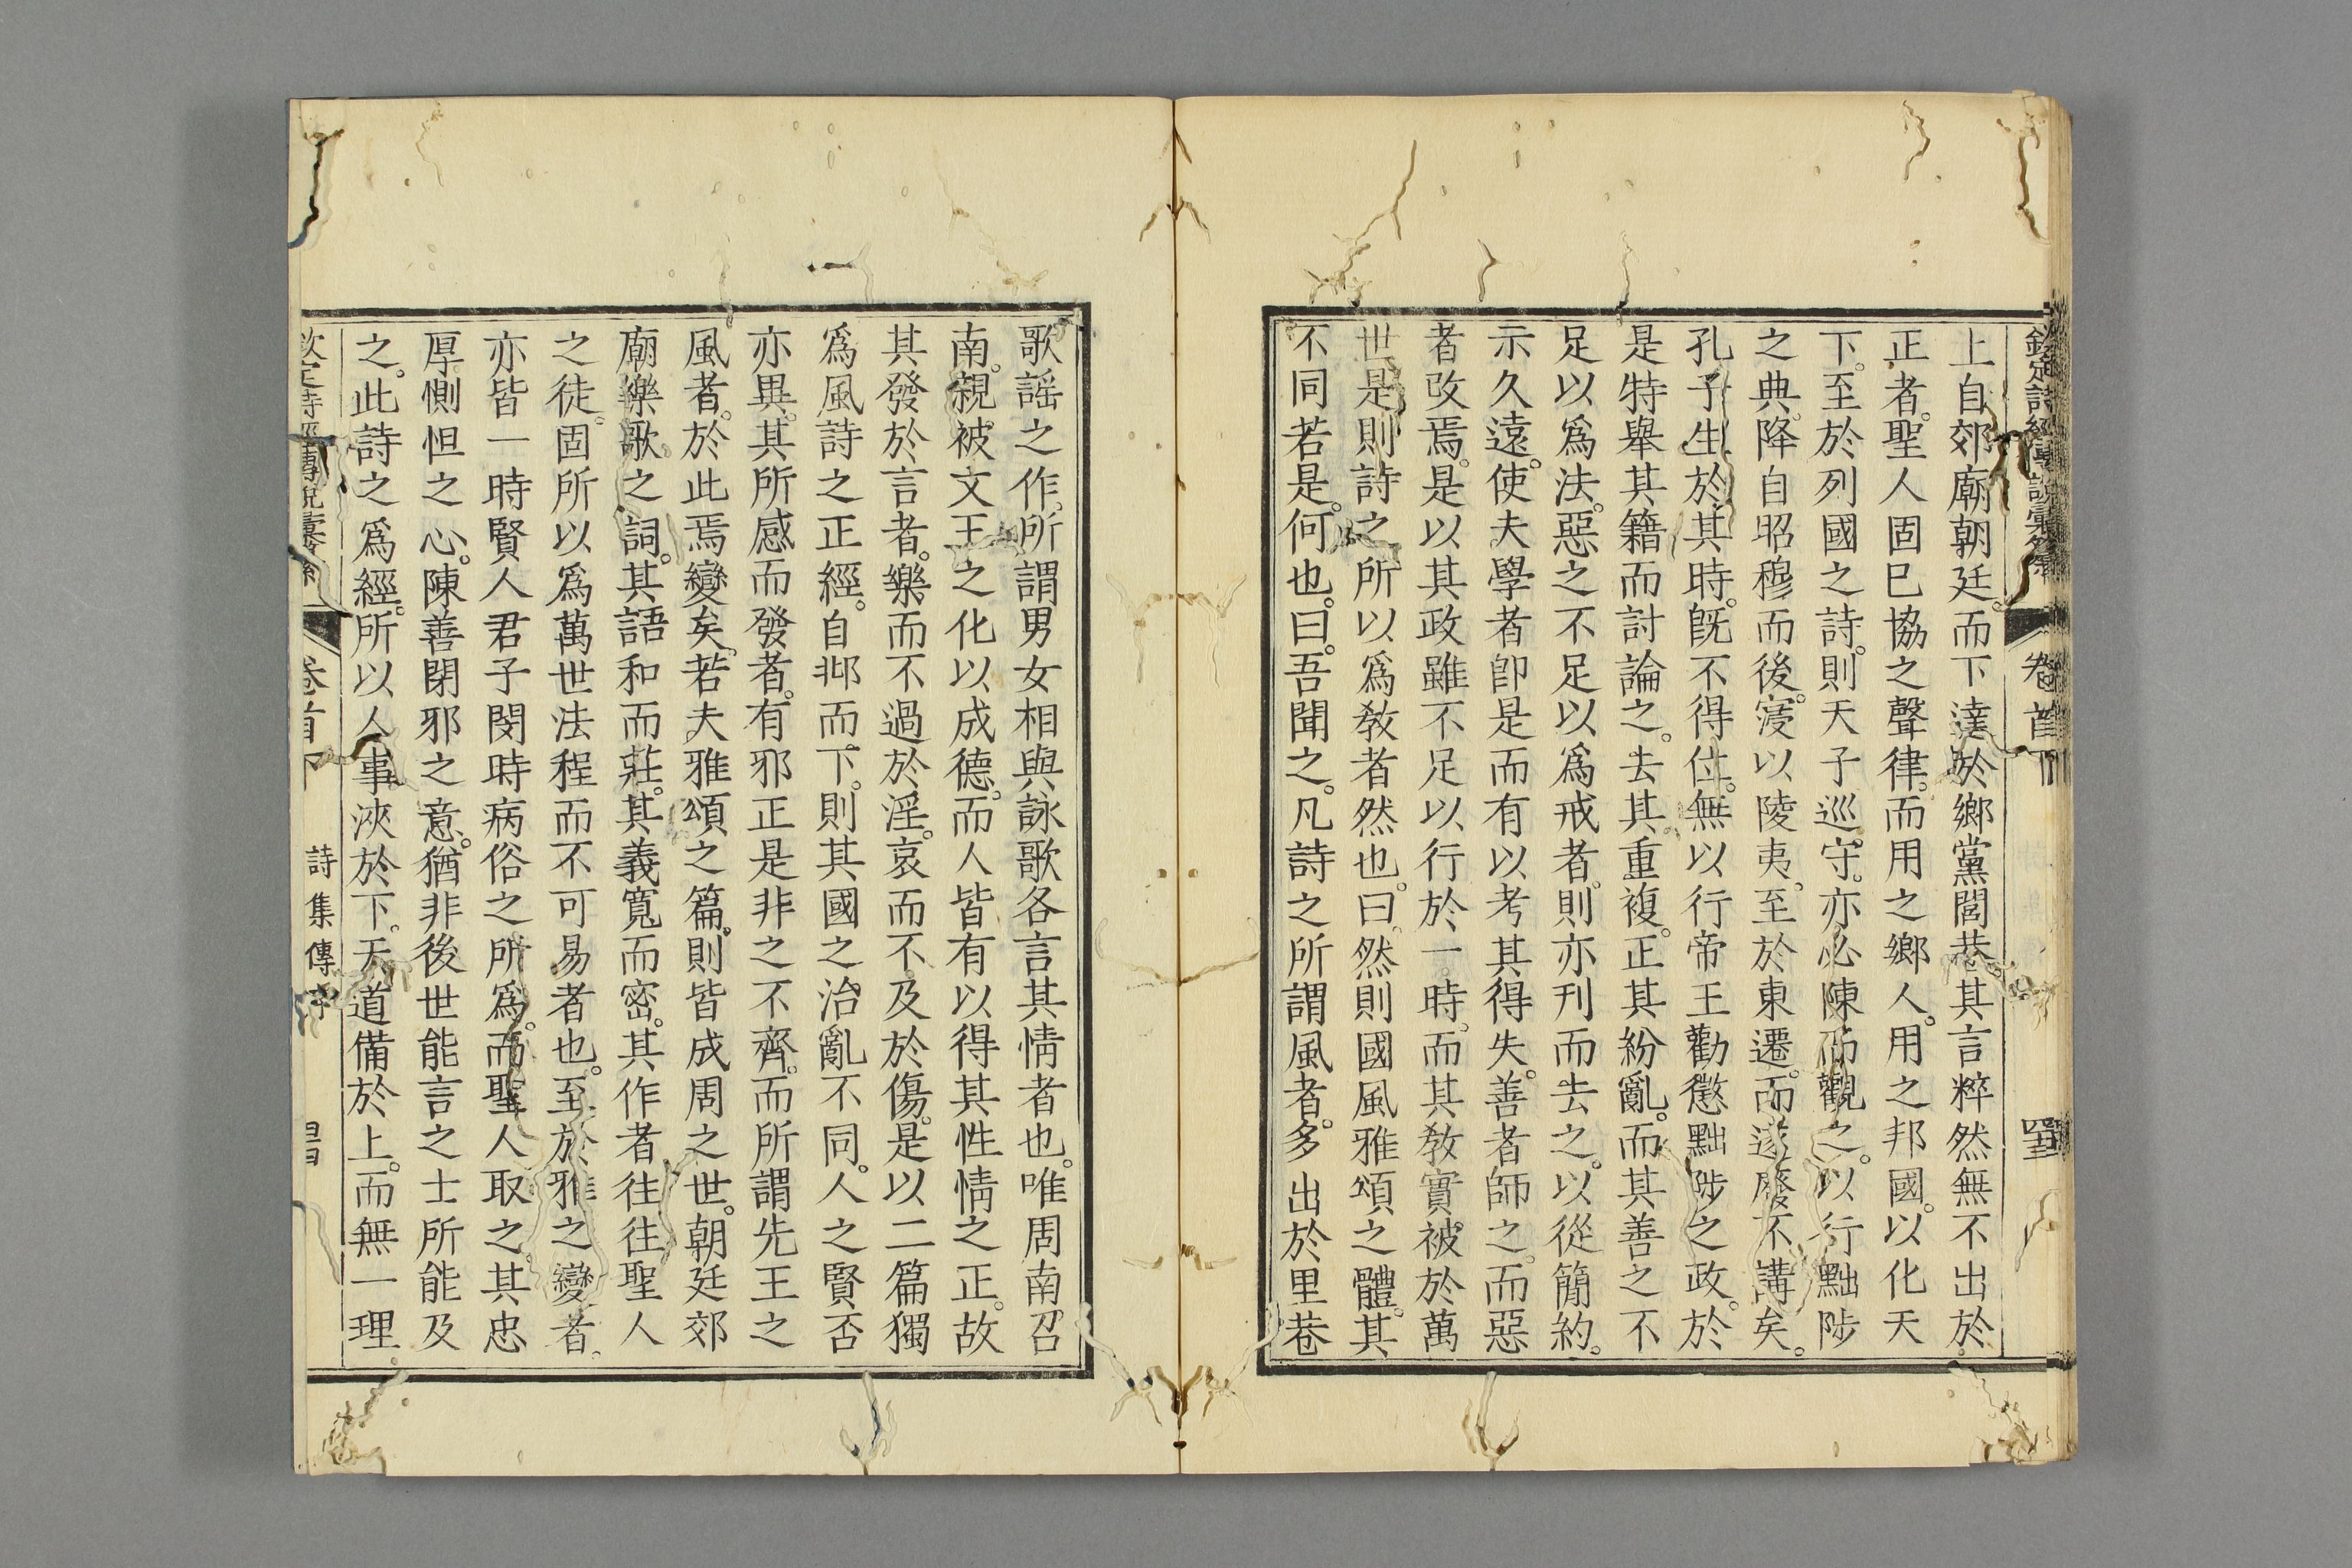 欽定詩經傳說彙纂 卷首下
上自郊廟朝廷。而下達於鄉黨閭巷。其言粹然無不出於
正者。聖人固已協之聲律。而用之鄉人。用之邦國。以化天
下。至於列國之詩。則天子巡守。亦必陳而觀之。以行黜陟
之典。降自昭穆而後。寖以陵夷。至於東遷。而遂廢不講矣。
孔子生於其時。旣不得位。無以行帝王勸懲黜陟之政。於
是特舉其籍而討論之。去其重複。正其紛亂。而其善之不
足以爲法。惡之不足以爲戒者。則亦刊而去之。以從簡約。
示久遠。使夫學者卽是而有以考其得失。善者師之。而惡
者改焉。是以其政雖不足以行於一時。而其敎實被於萬
世。是則詩之所以爲敎者然也。曰。然則國風雅頌之體。其
不同若是。何也。曰。吾聞之。凡詩之所謂風者。多出於里巷
歌謠之作。所謂男女相與詠歌各言其情者也。唯周南召
南。親被文王之化以成德。而人皆有以得其性情之正。故
其發於言者。樂而不過於淫。哀而不及於傷。是以二篇獨
爲風詩之正經。自邶而下。則其國之治亂不同。人之賢否
亦異。其所感而發者。有邪正是非之不齊。而所謂先王之
風者。於此焉變矣。若夫雅頌之篇。則皆成周之世。朝廷郊
廟樂歌之詞。其語和而莊。其義寬而密。其作者往往聖人
之徒。固所以爲萬世法程而不可易者也。至於雅之變者。
亦皆一時賢人君子閔時病俗之所爲。而聖人取之。其忠
厚惻怛之心。陳善閉邪之意。猶非後世能言之士所能及
之。此詩之爲經。所以人事浹於下。天道備於上。而無一理
卷首下 詩集傳序